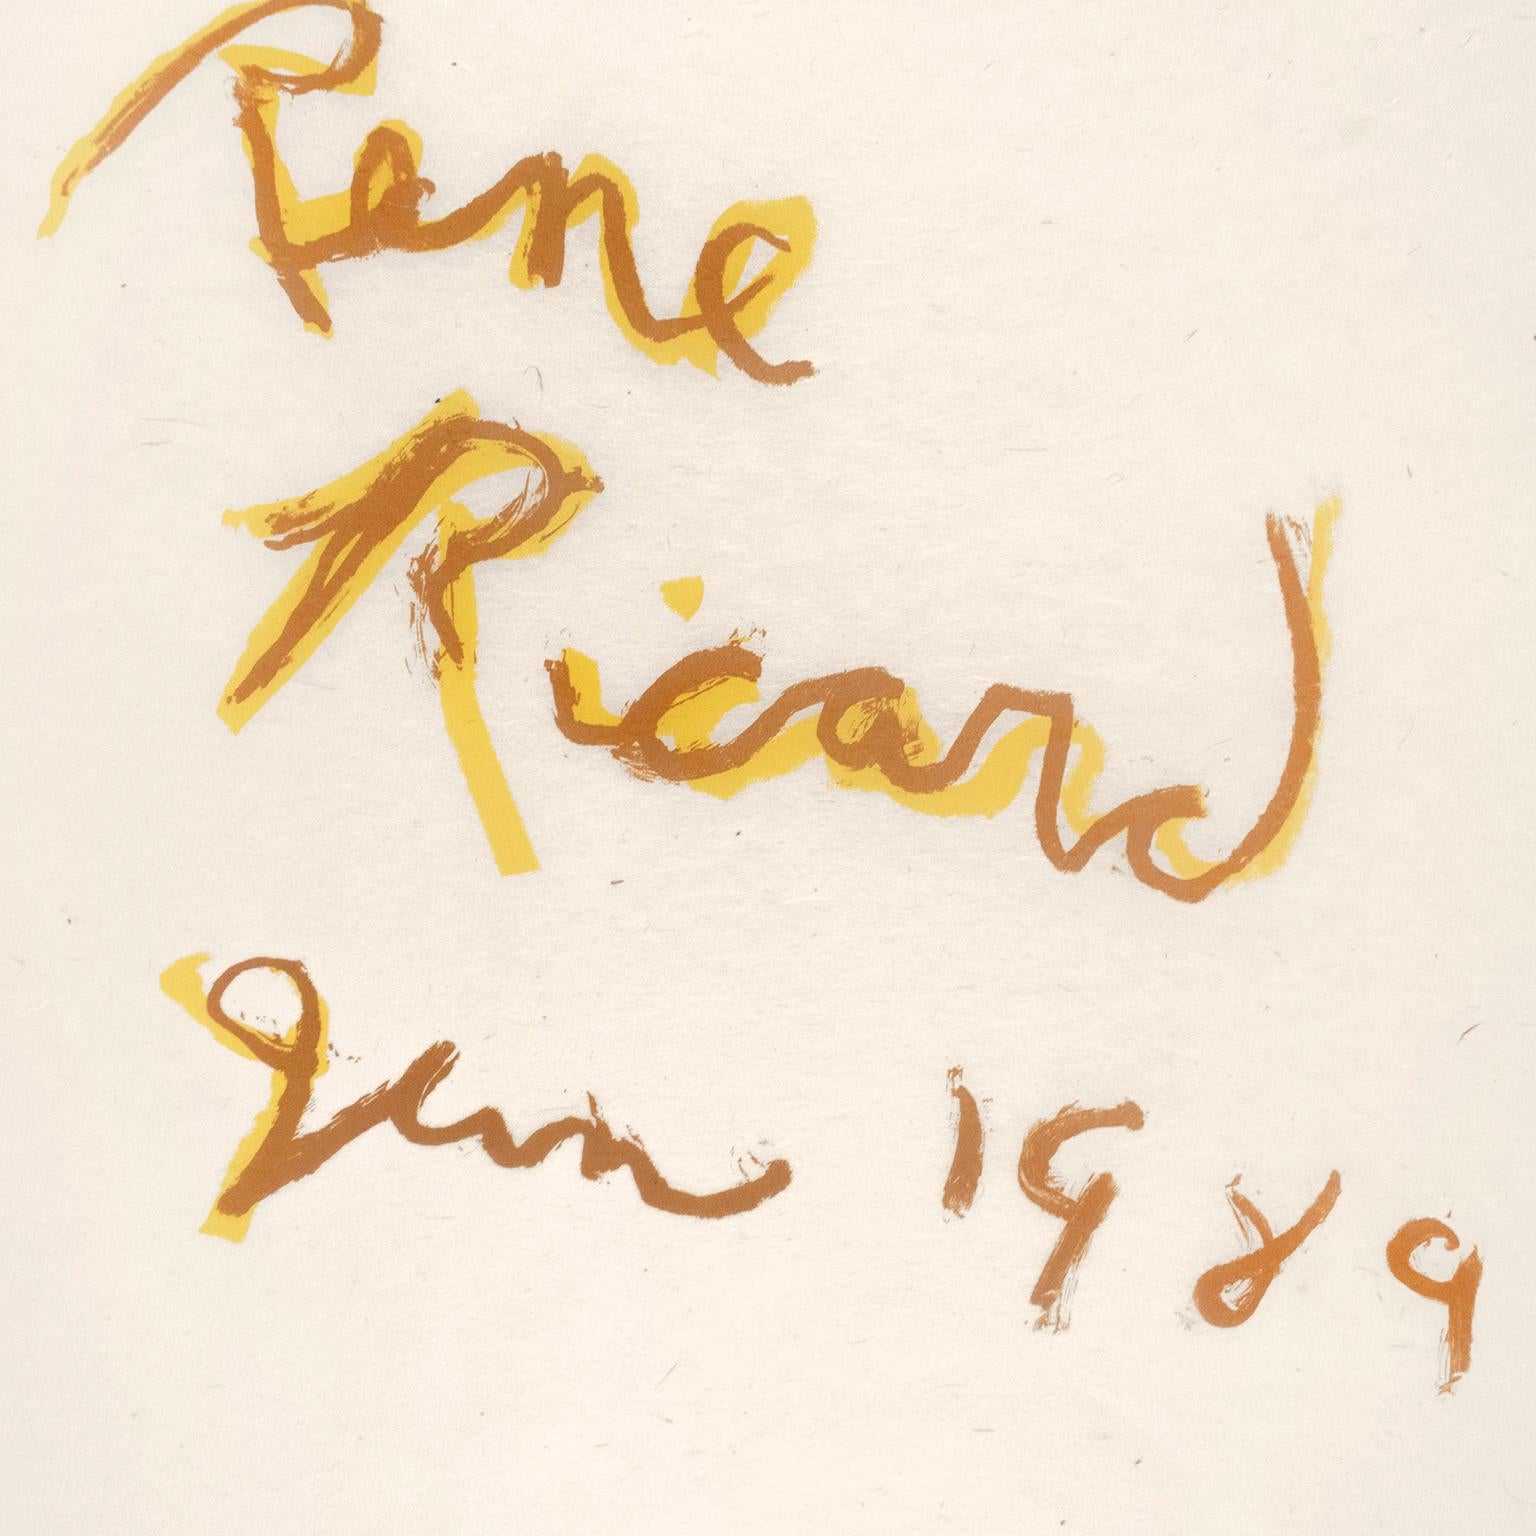 Rene
Ricard
Jun 1989